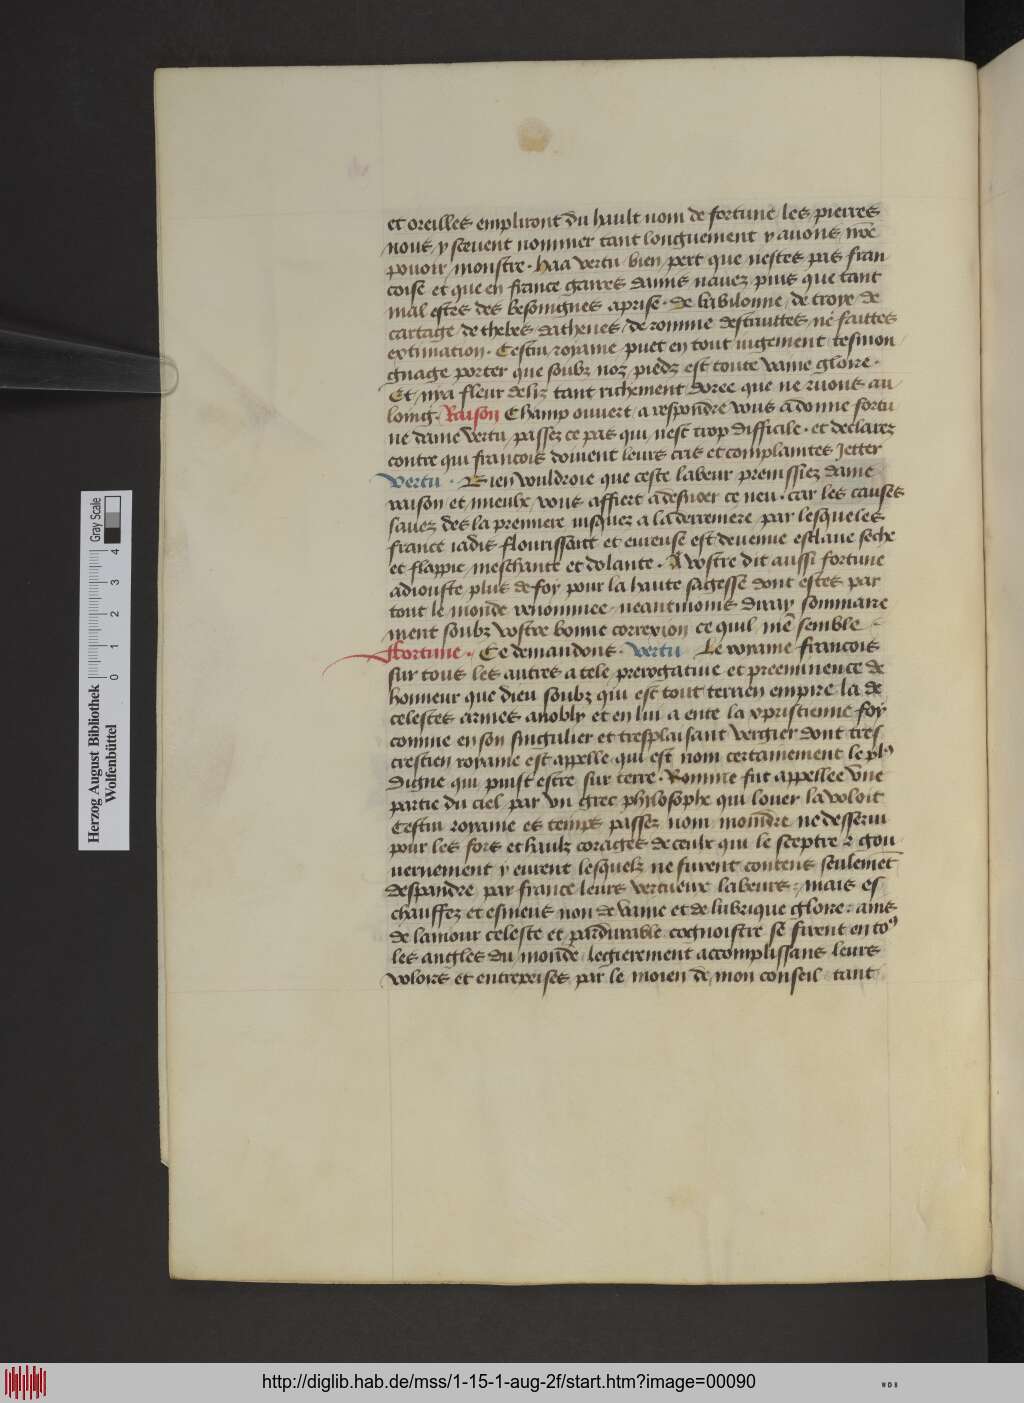 et oreilles empliront du hault nom de fortune les pierres
nous y scevent nommer tant longuement y avons nre
povoir monstre. Haa vertu bien pert que nestes pas fran
coise et que en france gaires damis navez puis que tant
mal estes des besoingnes aprise. De babilonne de troye de
cartage de thebes dathenes de romme destruittes ne faittes
extimation. Cestui royame puet en tout iugement tesmon
gnage porter que soubz noz piedz est toute vaine gloire.
Et nra fleur de liz tant richement doree que ne ruons au
loing. Raison Champ ouvert a respondre vous a donne fortu
ne dame vertu passez ce pas qui nest trop difficile. et declarez
contre qui francois doivent leurs cris et complaintes jetter
Vertu. Bien vouldroie que ceste labeur preinssiez dame
raison et mieulx vous affiert a desnoer ce neu. car les causes
savez des la premiere iusquez a la derreniere par lesqueles
france iadis flourissant et eureuse est devenue esclave seche
et flappie meschante et dolante. A vostre dit aussi fortune
adiouste plus de foy pour la haute sagesse dont estes par
tout le monde renommee neantmoins diray sommaire
ment soubz vostre bonne correxion ce quil me semble
Fortune. Ce demandons. Vertu Le royame francois
sur tous les autres a tele prerogative et preeminence de
honneur que dieu soubz qui est tout terrien empire la de
celestes armes anobly et en lui a ente la xpristienne foy
comme en son singulier et tresplaisant vergier dont tres
crestien royame est appelle qui est nom certainement le plꝰ
digne qui puist estre sur terre. Romme fut appellee une
partie du ciel par un grec philosophe qui louer la voloit
Cestui royame es temps passez nom moindre ne desservi
pour les fors et haulz corages de ceulx qui le sceptre et gou
vernement y eurent lesquelz ne furent contens seulemet
despandre par france leurs vertueux labeurs: mais es
chauffez et esmeus non de vaine et de lubrique gloire: ains
de lamour celeste et pardurable cognoistre se firent en toꝰ
les angles du monde legierement accomplissans leurs
voloirs et entreprises par le moien de mon conseil tant
Herzog August Bibliothek
Wolfenbüttel
0 1 2 3 4
Gray Scale
http://diglib.hab.de/mss/1-15-1-aug-2f/start.htm?image=00090
WDB